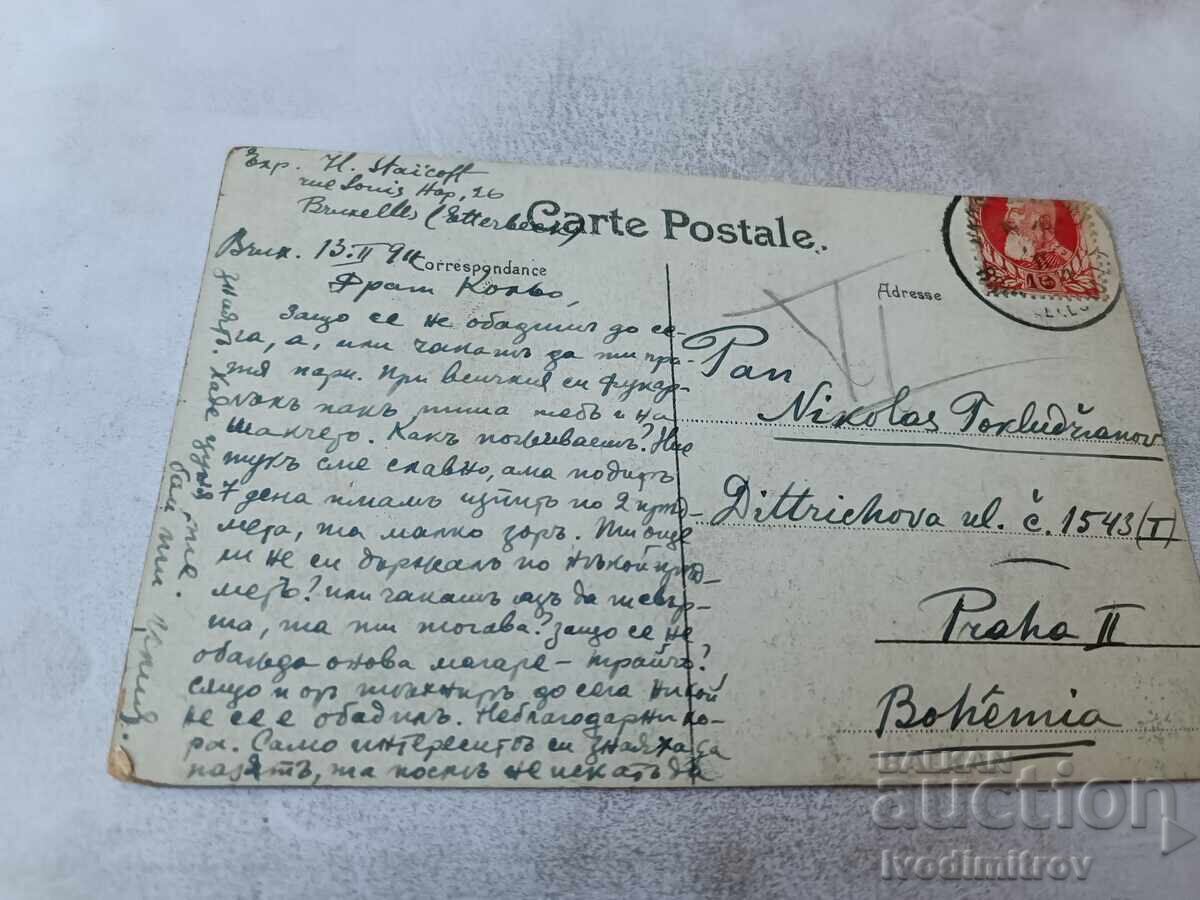 Exp. H. Staïcoff
rue Louis Hap, 26
Bruxelles (Etterbeek)
Carte Postale.
Correspondance
Adresse
Брюк. 13.II 911
Драги Кольо,
Защо се не обадишъ до се-
га, а, или чакашъ да ти пра-
тя пари. При всичкия си фукар-
лъкъ пакъ пиша тебъ и на
Танчето. Какъ поживаешъ? Ние
тукъ сме славно, ама подиръ
7 дена имамъ изпитъ по 2 пред-
мета, та малко зоръ. Ти още
ли не си държалъ по нѣкой пред-
метъ? или чакашъ азъ да свър-
ша, та ти тогава? Защо се не
обажда онова магаре - Трайчо?
Също и отъ до сега никой
не се е обадилъ. Неблагодарни хо-
ра. Само интереситѣ си знаяха да
пазятъ, та послѣ не искатъ да
знаятъ. Хайде
бай ти
Pan
Nikolas Tokludžianov
Dittrichova ul. č. 1543 (I)
Praha II
Bohêmia
BALKAN
auction
Ivodimitrov